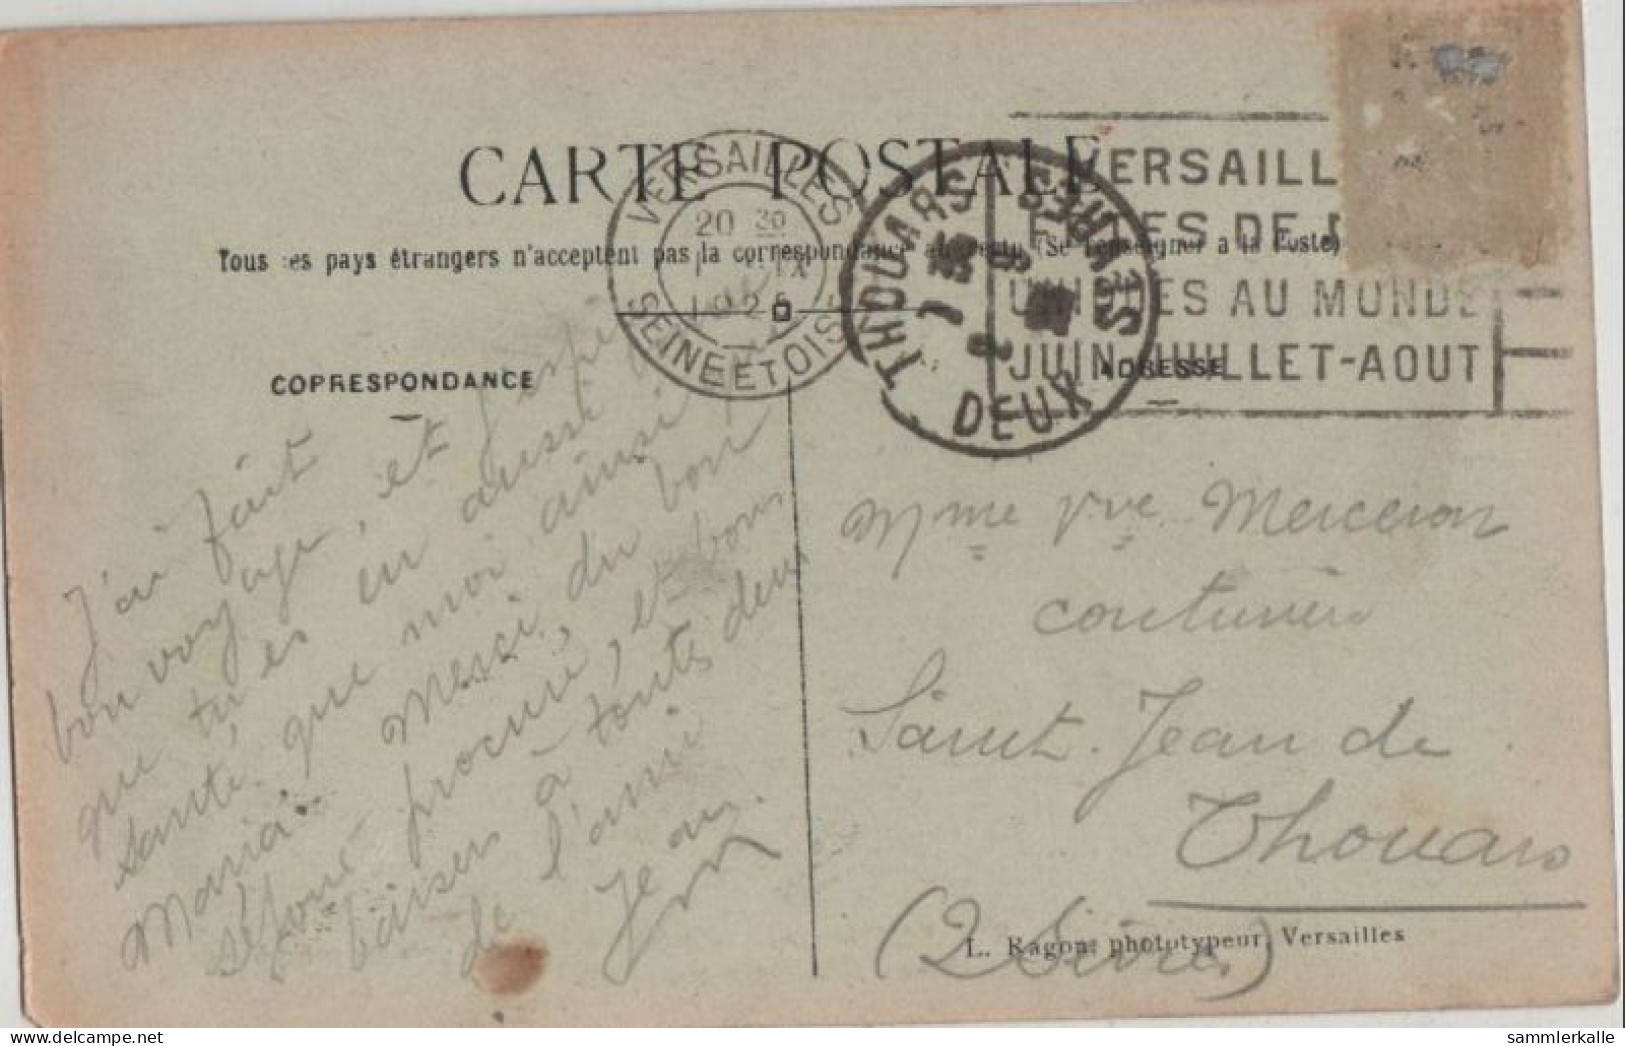 CARTE POSTALE
Tous les pays étrangers n'acceptent pas la correspondance au recto (Se renseigner à la Poste)
VERSAILLES
20 30
SEINE ET OISE
THOUARS
DEUX SEVRES
VERSAILL
UNIQUES AU MONDE
JUIN-JUILLET-AOUT
CORRESPONDANCE
ADRESSE
J'ai fait
bon voyage, et j'espère
que tu es en aussi
santé que moi ainsi
Maria. Merci du bon
séjour procuré, et bons
baisers à toutes deux
de l'ami
Jean
Mme Vve Merceron
couturière
Saint. Jean de
Thouars
(2 Sèvres)
L. Ragon, phototypeur, Versailles
sammlerkalle